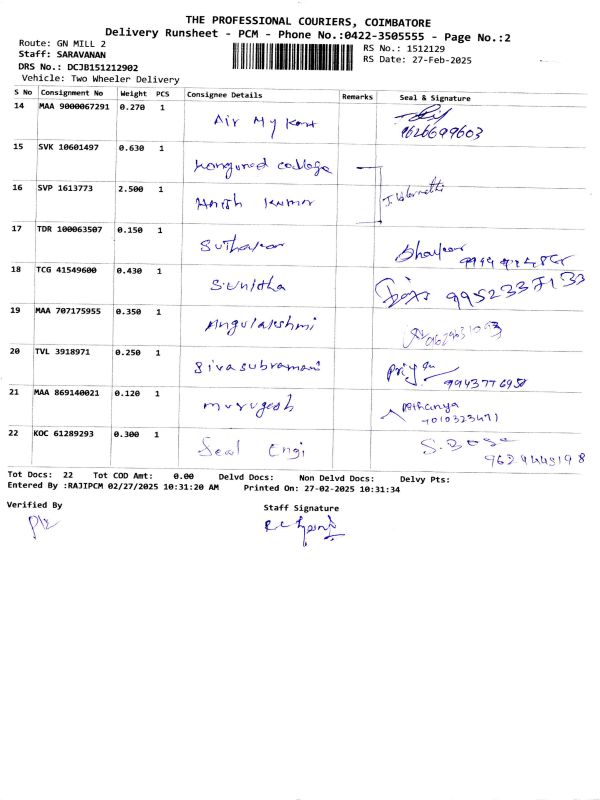 THE PROFESSIONAL COURIERS, COIMBATORE
Delivery Runsheet - PCM - Phone No.:0422-3505555 - Page No.:2
Route: GN MILL 2 RS No.: 1512129
Staff: SARAVANAN RS Date: 27-Feb-2025
DRS No.: DCJB151212902
Vehicle: Two Wheeler Delivery
S No Consignment No Weight PCS Consignee Details Remarks Seal & Signature
14 MAA 9000067291 0.270 1 Air My Kart
9626699603
15 SVK 10601497 0.630 1 college
16 SVP 1613773 2.500 1 Harish Kumar
17 TDR 100063507 0.150 1 Suthakar
18 TCG 41549600 0.430 1 Sunitha 9952337133
19 MAA 707175955 0.350 1 Angulakshmi
20 TVL 3918971 0.250 1 Sivasubramani
9943776958
21 MAA 869140021 0.120 1 murugesh
7010323471
22 KOC 61289293 0.300 1 Seal Engi S. Bose
9629449198
Tot Docs: 22 Tot COD Amt: 0.00 Delvd Docs: Non Delvd Docs: Delvy Pts:
Entered By :RAJIPCM 02/27/2025 10:31:20 AM Printed On: 27-02-2025 10:31:34
Verified By Staff Signature